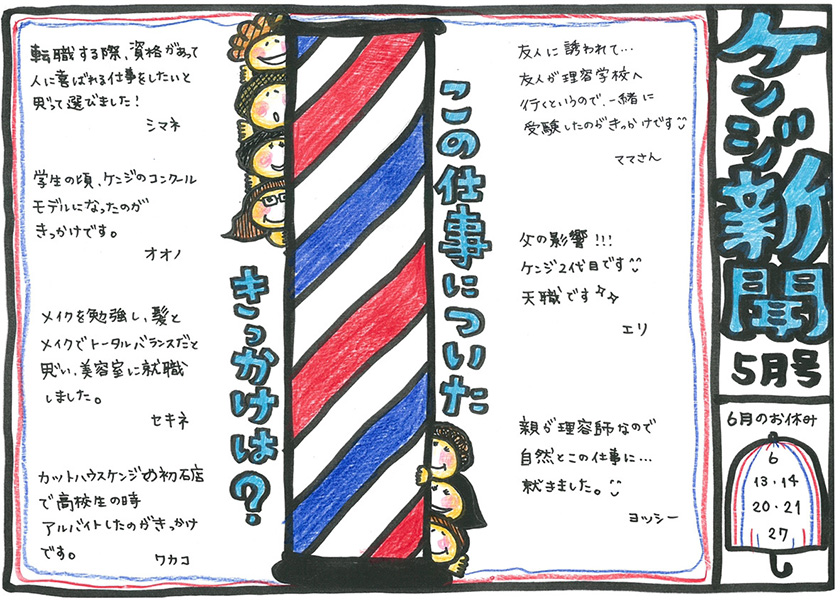 ケンジ新聞
5月号
6月のお休み
6
13・14
20・21
27
この仕事についた
きっかけは?
友人に誘われて…
友人が理容学校へ
行くというので、一緒に
受験したのがきっかけです
ママさん
父の影響!!!
ケンジ2代目です
天職です
エリ
親が理容師なので
自然とこの仕事に…
就きました。
ヨッシー
転職する際、資格があって
人に喜ばれる仕事をしたいと
思って選びました!
シマネ
学生の頃、ケンジのコンクール
モデルになったのが
きっかけです。
オオノ
メイクを勉強し、髪と
メイクでトータルバランスだと
思い、美容室に就職
しました。
セキネ
カットハウスケンジの初石店
で高校生の時
アルバイトしたのがきっかけ
です。
ワカコ